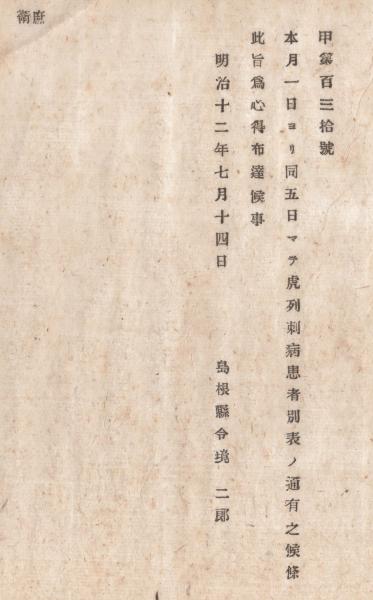 甲第百三拾號
本月一日ヨリ同五日マテ虎列刺病患者別表ノ通有之候條
此旨爲心得布達候事
明治十二年七月十四日
島根縣令境二郎
庶衛